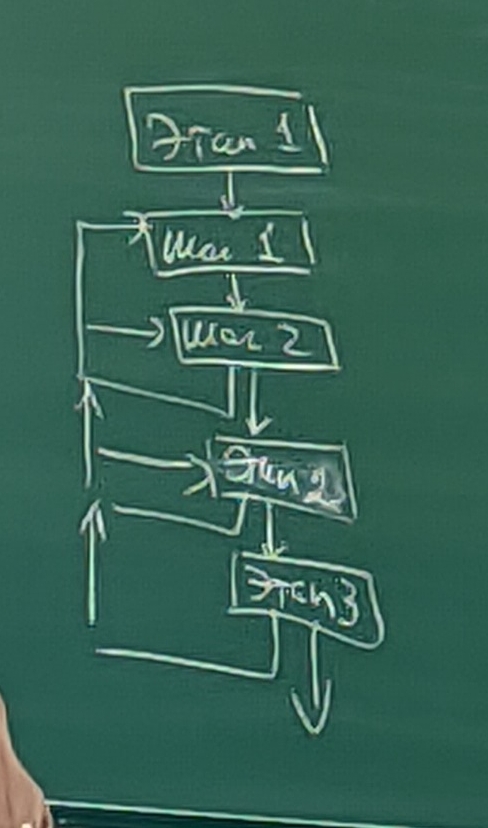 Этап 1
Шаг 1
Шаг 2
Этап 2
Этап 3